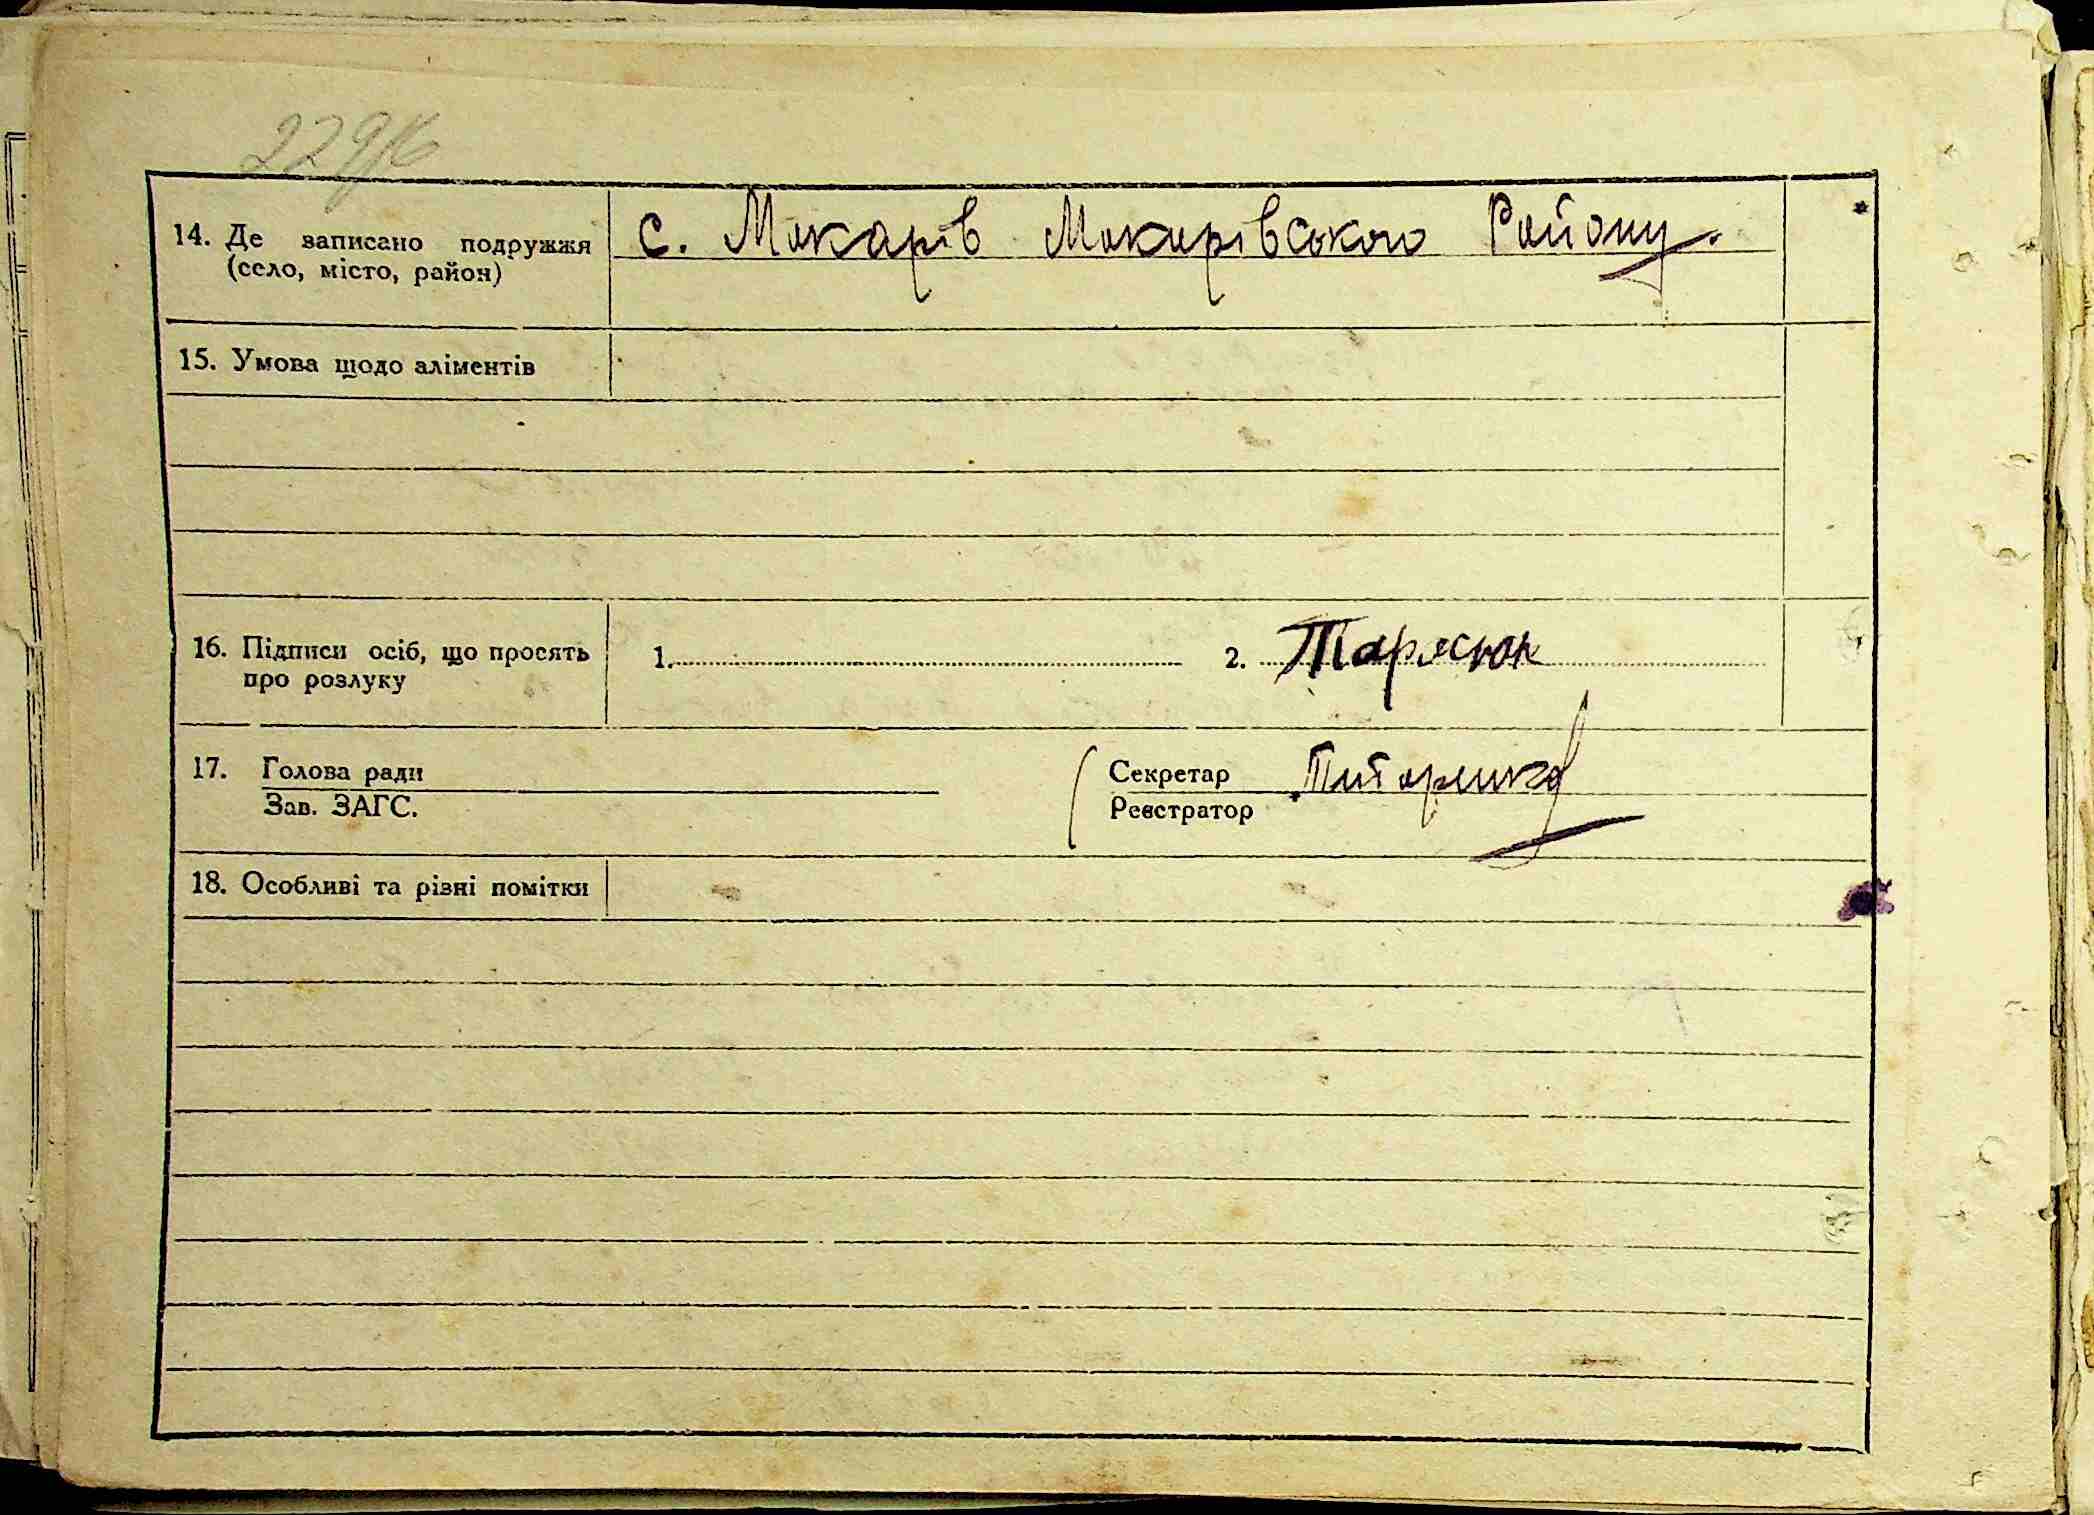 14. Де записано подружжя
(село, місто, район)
с. Макарів Макарівського Району.
15. Умова щодо аліментів
16. Підписи осіб, що просять
про розлуку
1. 2. Тарасюк
17. Голова ради
Зав. ЗАГС.
Секретар
Реєстратор
18. Особливі та різні помітки